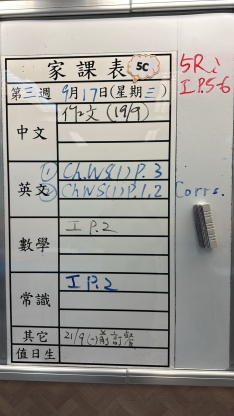 家課表 5C
第三週 9月17日(星期三)
中文 作文 (19/9)
英文 ① Ch.WS(1)P.3
② Ch WS(1)P.1,2 Corrs.
數學 I P.2
常識 I P.2
其它 21/9(一)前訂餐
值日生
5R i
I P.5-6